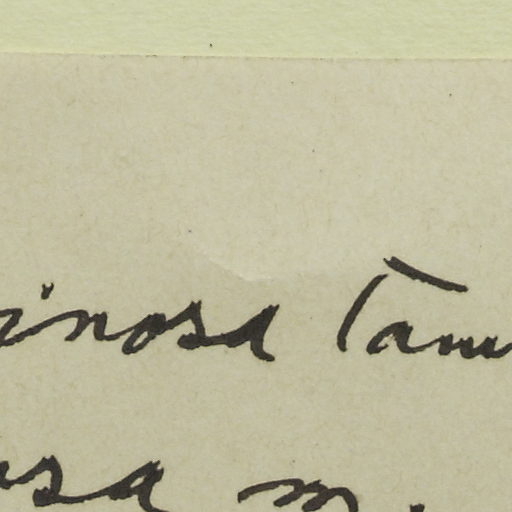 inosa Tam
osa m.